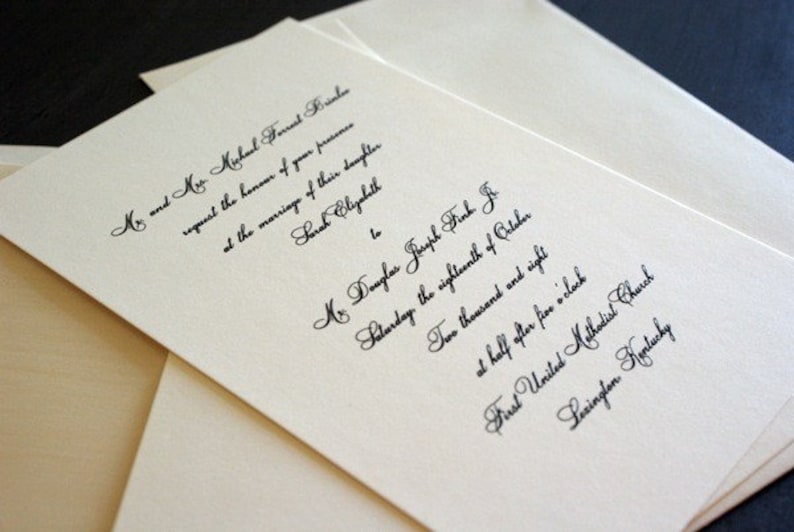 Mr. and Mrs. Michael Forrest Brinlee
request the honour of your presence
at the marriage of their daughter
Sarah Elizabeth
to
Mr. Douglas Joseph Fink Jr.
Saturday, the eighteenth of October
Two thousand and eight
at half after five o'clock
First United Methodist Church
Lexington, Kentucky